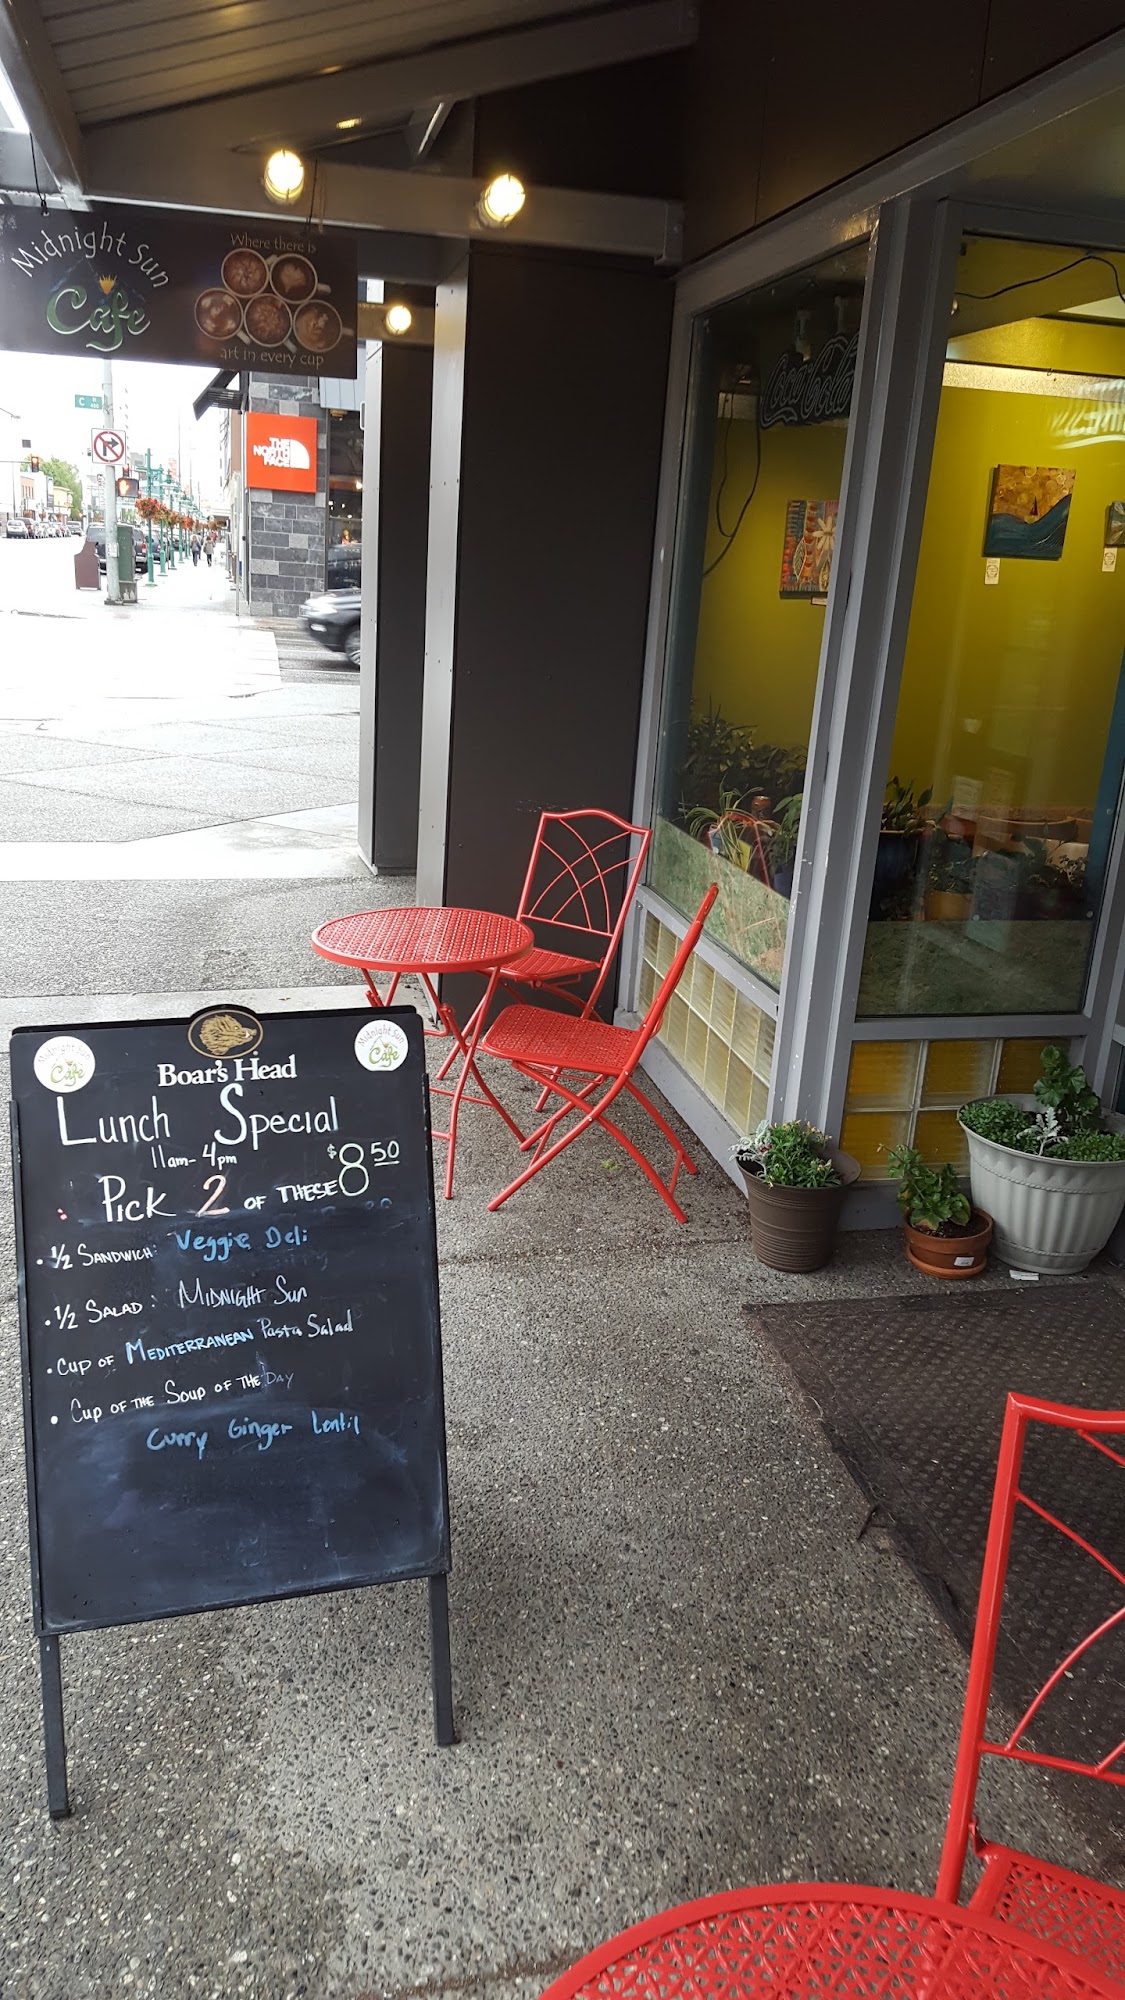 Midnight Sun
Cafe
Where there is
art in every cup
C
THE
NORTH
FACE
Coca-Cola
Midnight Sun
Cafe
Boar's Head
Midnight Sun
Cafe
Lunch Special
11am-4pm
$8.50
Pick 2 of these
• 1/2 Sandwich: Veggie Deli
• 1/2 Salad: Midnight Sun
• Cup of Mediterranean Pasta Salad
• Cup of the Soup of the Day
Curry Ginger Lentil